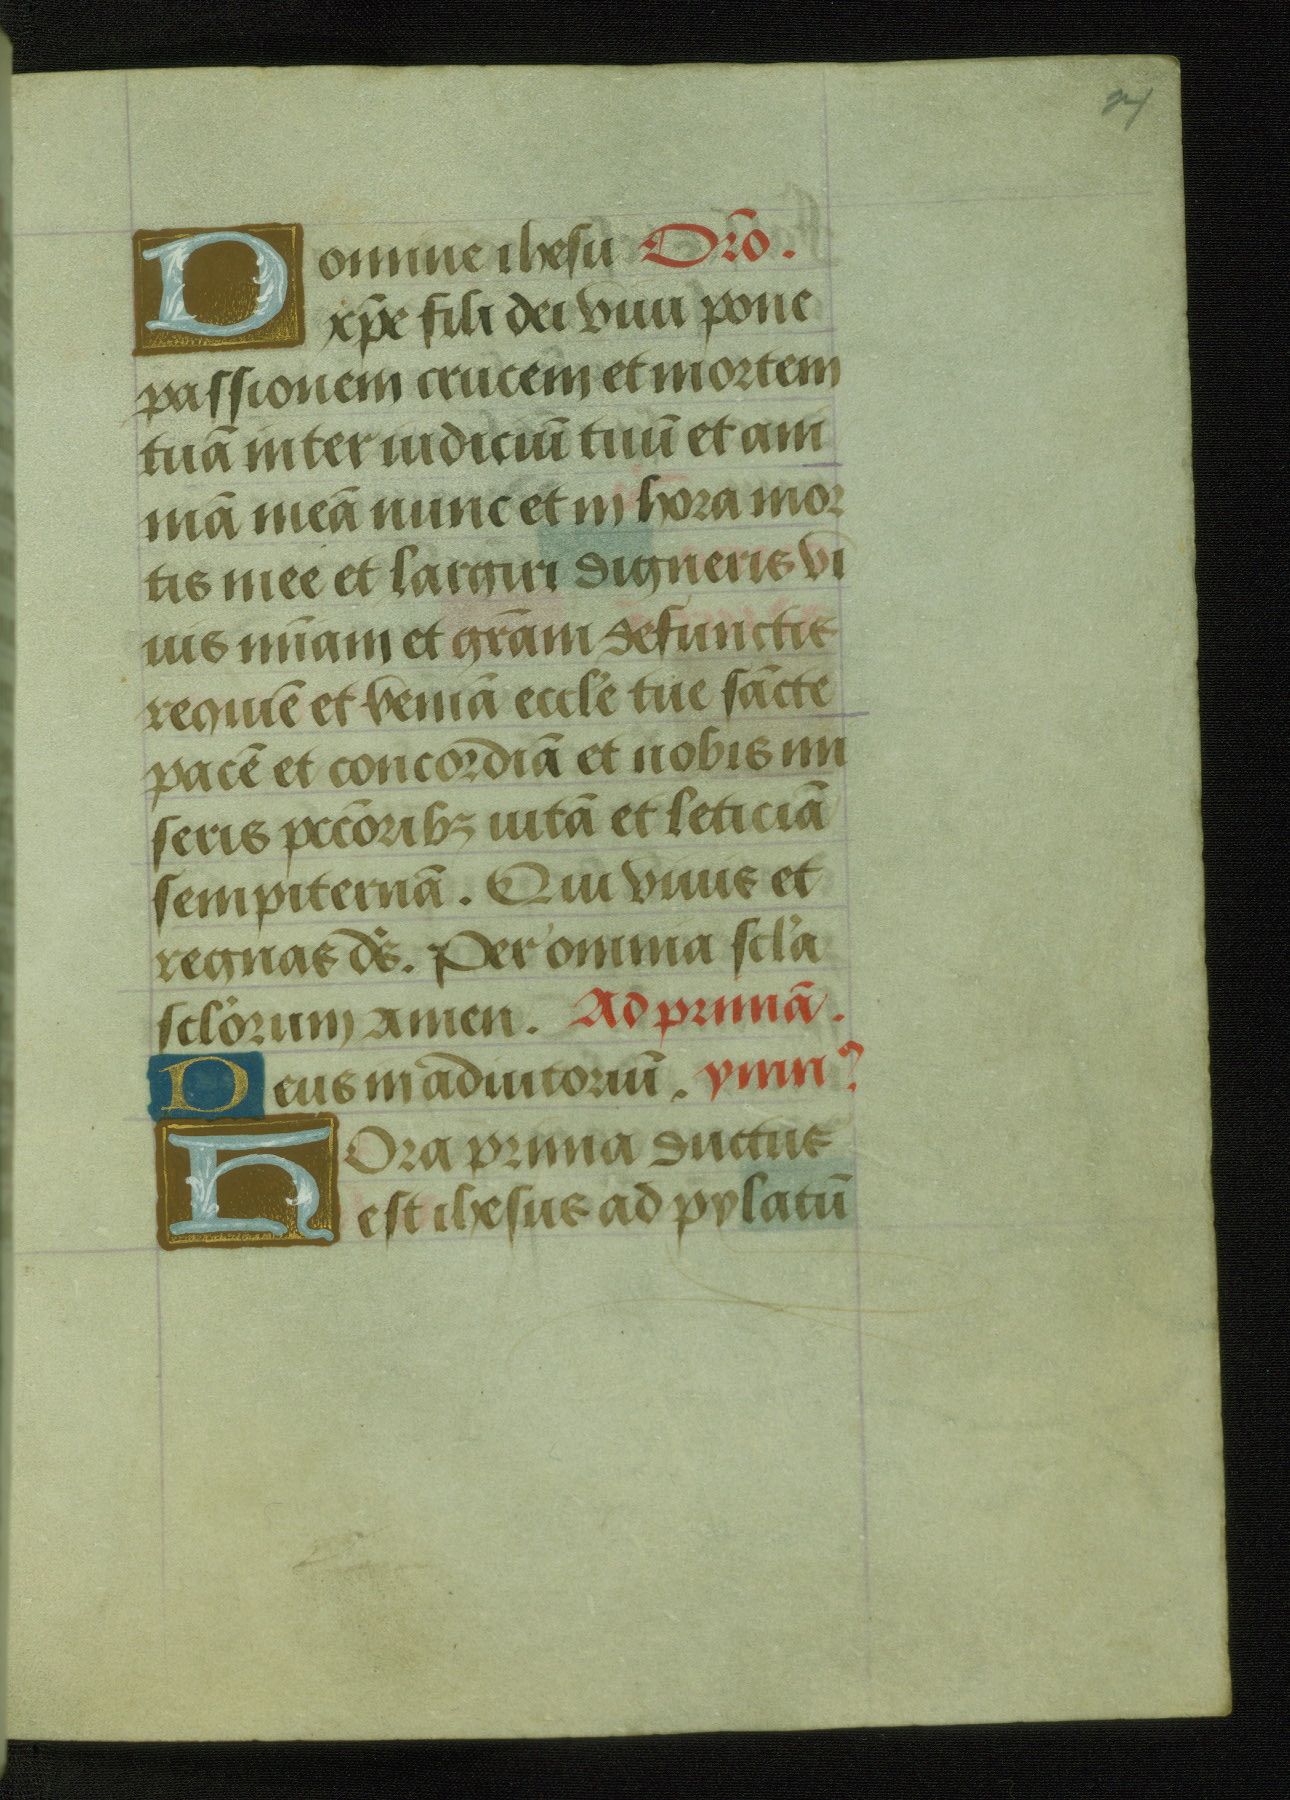 Domine ihesu Orõ.
xp̃e fili dei viui pone
passionem crucem et mortem
tuã inter iudiciũ tuũ et ani
mã meã nunc et in hora mor
tis mee et largiri digneris vi
uis mĩam et gr̃am defunctis
requiẽ et veniã eccl'e tue sãcte
pacẽ et concordiã et nobis mi
seris pcc̃oribꝫ uitã et leticiã
sempiternã. Qui viuis et
regnas ds̃. Per omnia scl'a
scl'orum amen. Ad primã.
Deus in adiutoriũ. ymnꝰ
Hora prima ductus
est ihesus ad pylatũ